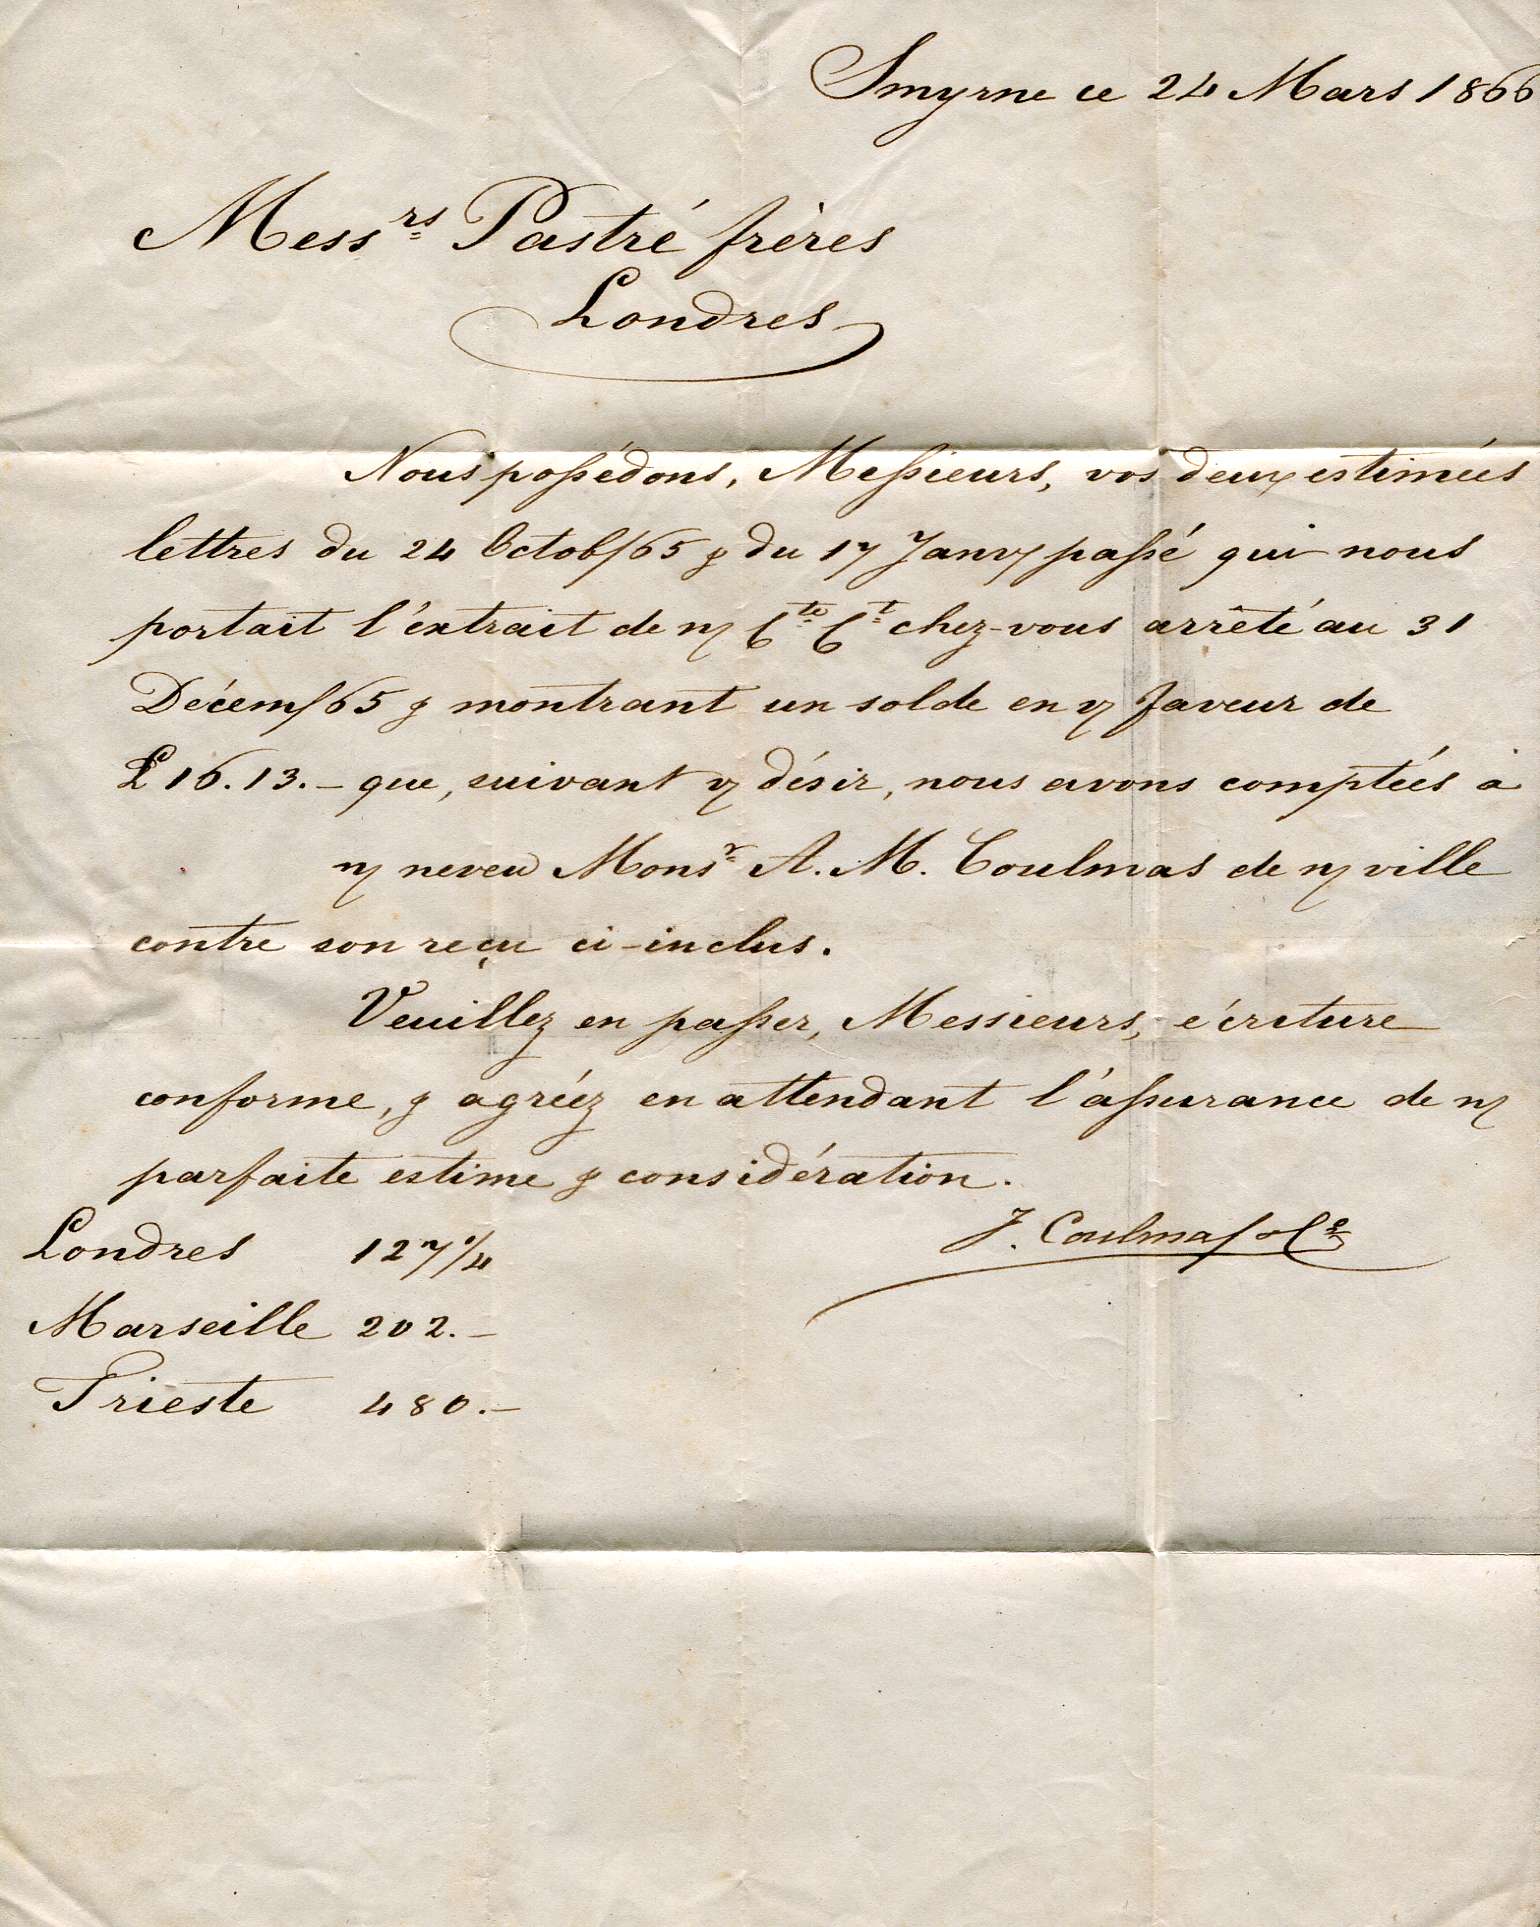 Smyrne ce 24 Mars 1866
Messrs Pastré frères
Londres
Nous possédons, Messieurs, vos deux estimées
lettres du 24 Octob/65 & du 17 Janvʸ passé qui nous
portait l'extrait de n/ Cte Ct chez-vous arrêté au 31
Décem/65 & montrant un solde en v/ faveur de
£ 16.13.– que, suivant v/ désir, nous avons comptées à
n/ neveu Monsr A. M. Coulmas de n/ ville
contre son reçu ci-inclus.
Veuillez en passer, Messieurs, écriture
conforme, & agréez en attendant l'assurance de n/
parfaite estime & considération.
J. Coulmas & Ce
Londres 127 1/4
Marseille 202.–
Trieste 480.–